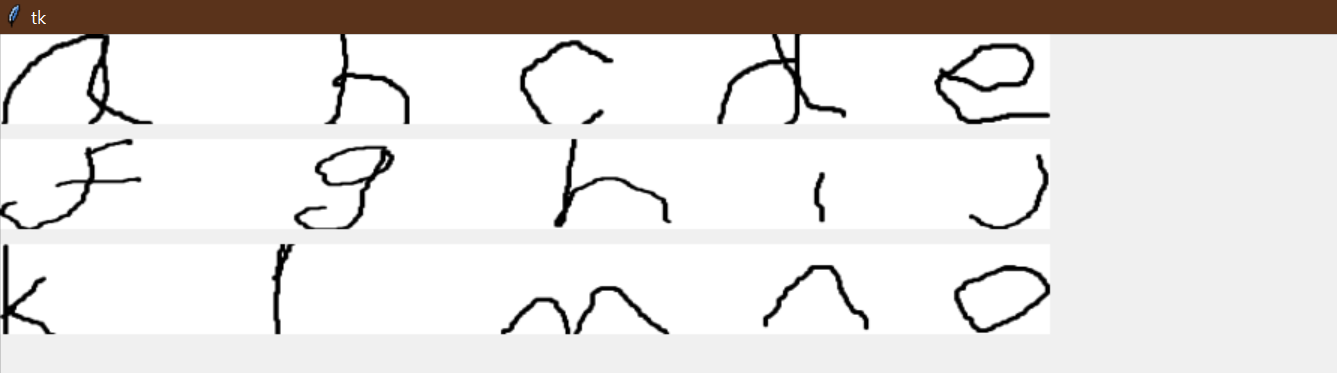 tk
a h c d e
f g h i j
k l m n o